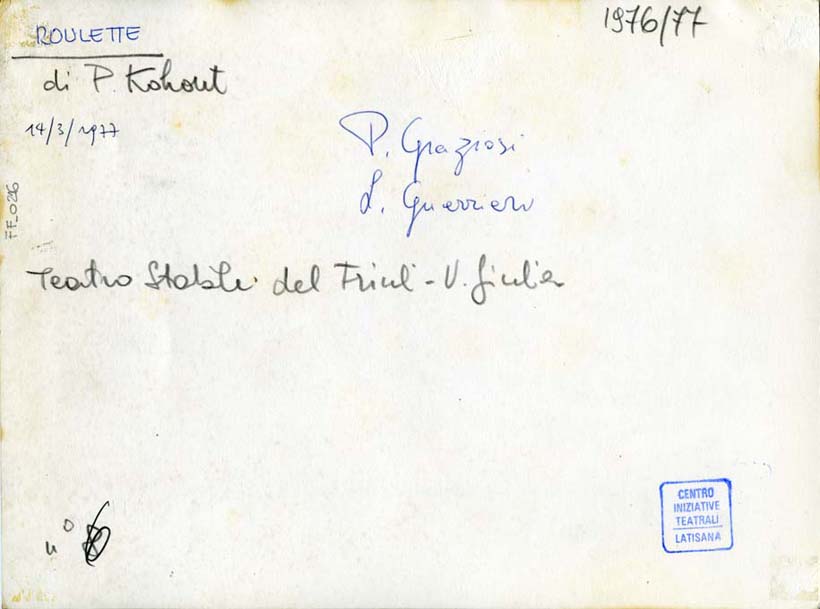 1976/77
ROULETTE
di P. Kohout
14/3/1977
P. Graziosi
L. Guerriero
FF_026
Teatro Stabile del Friuli-V. Giulia
n° 6
CENTRO
INIZIATIVE
TEATRALI
LATISANA